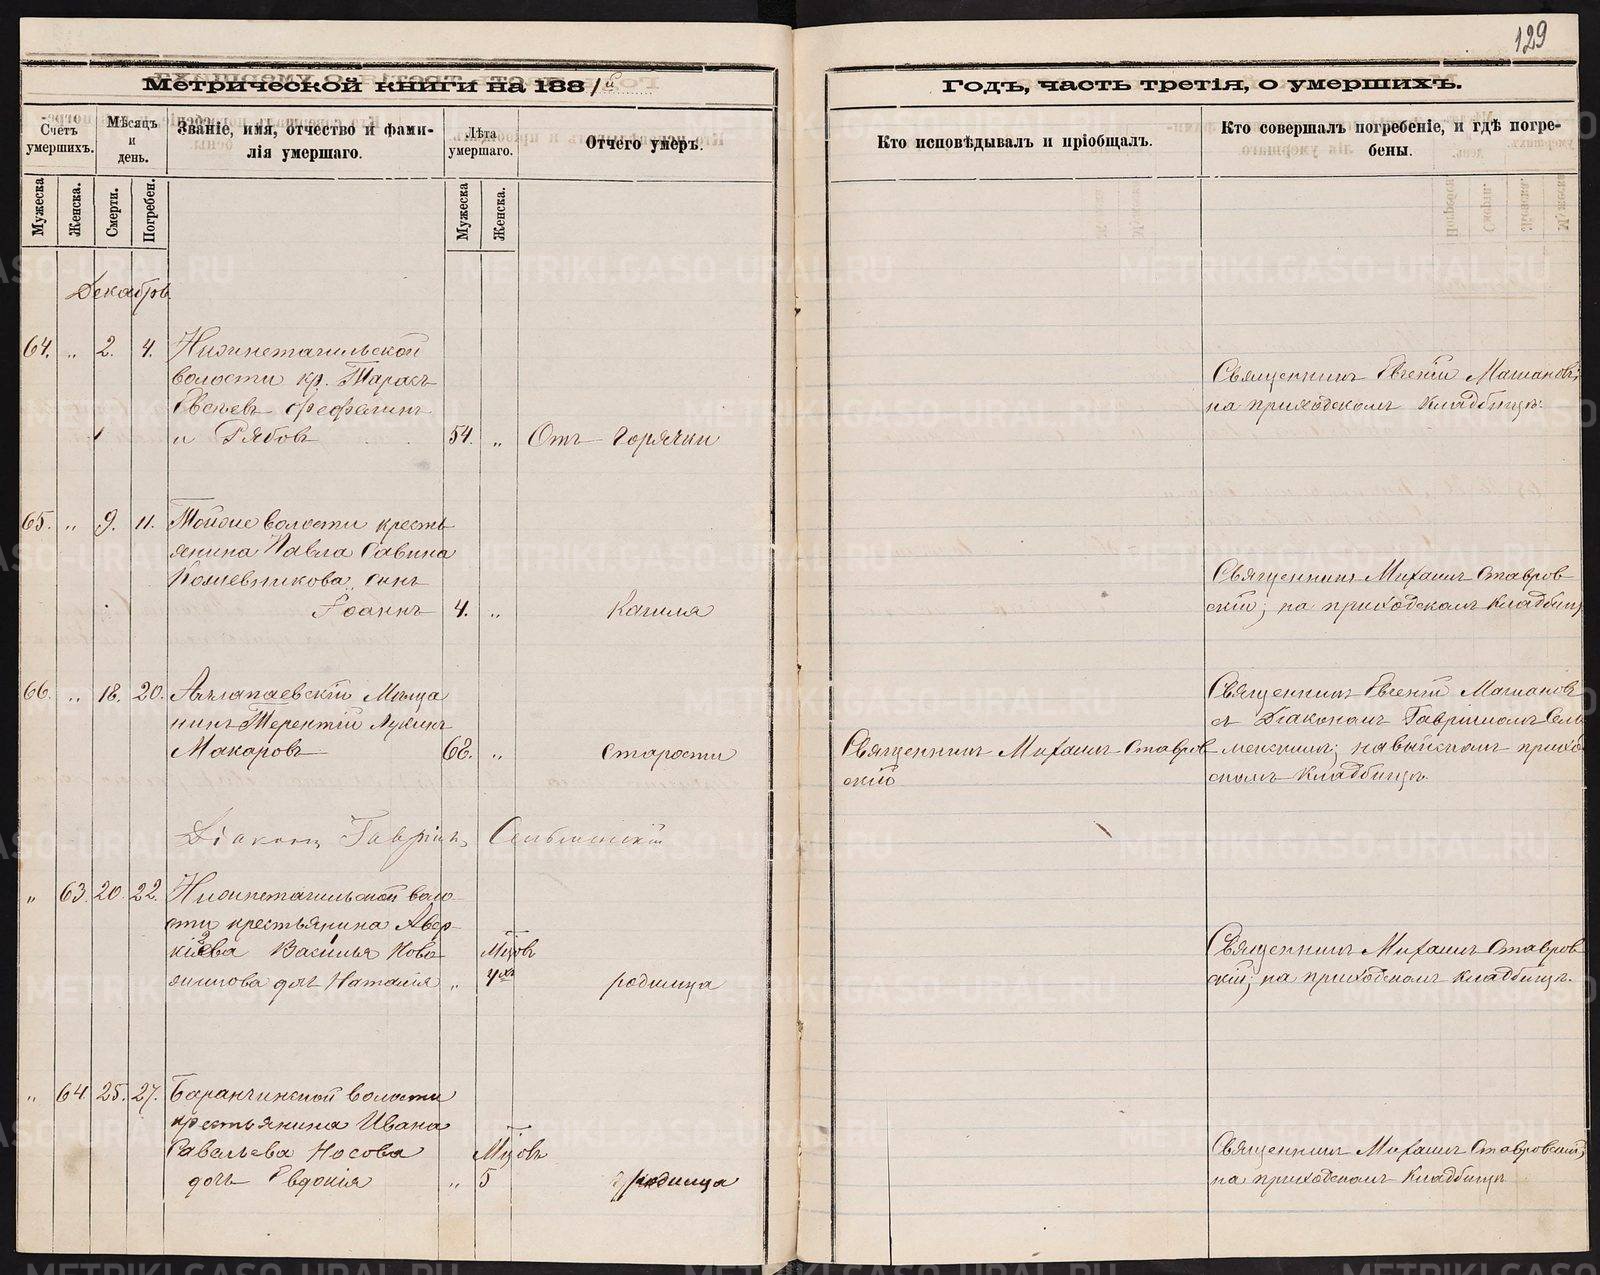 129
Метрической книги на 1881й
Годъ, часть третія, о умершихъ.
Счетъ умершихъ.
Мѣсяцъ и день.
Званіе, имя, отчество и фами-
лія умершаго.
Лѣта умершаго.
Отчего умеръ.
Кто исповѣдывалъ и пріобщалъ.
Кто совершалъ погребеніе, и гдѣ погре-
бены.
Мужеска
Женска.
Смерти.
Погребен.
Мужеска
Женска.
Декабрь
64. " 2. 4. Нижнетагильской
волости кр. Тарасъ
Евсѣевъ
и Рябовъ 54. " Отъ горячки
Священникъ Евгеній
на приходскомъ кладбищѣ.
65. " 9. 11. Тойже волости кресть
янина Павла Савина
Кожевникова сынъ
Іоаннъ 4. " Кашля
Священникъ Михаилъ Ставров
скій; на приходскомъ кладбищ
66. " 18. 20. Алапаевскій Мѣща
нинъ Терентій Лукинъ
Макаровъ 68. " Старости
Священникъ Михаилъ Ставров
скій
Священникъ Евгеній
съ Діакономъ Гавріиломъ Сель
менскимъ; на выйскомъ приход
скомъ кладбищѣ.
Діаконъ Гавріилъ Сельменскій
" 63. 20. 22. Нижнетагильской воло
сти крестьянина Авер
кіева Василья Ново
шинова дочь Наталія " Мцовъ 4хъ родимца
Священникъ Михаилъ Ставров
скій; на приходскомъ кладбищѣ.
" 64. 25. 27. Баранчинской волости
крестьянина Ивана
Савельева Носова
дочь Евдокія " Мцовъ 5 родимца
Священникъ Михаилъ Ставровскій;
на приходскомъ кладбищѣ
METRIKI.GASO-URAL.RU